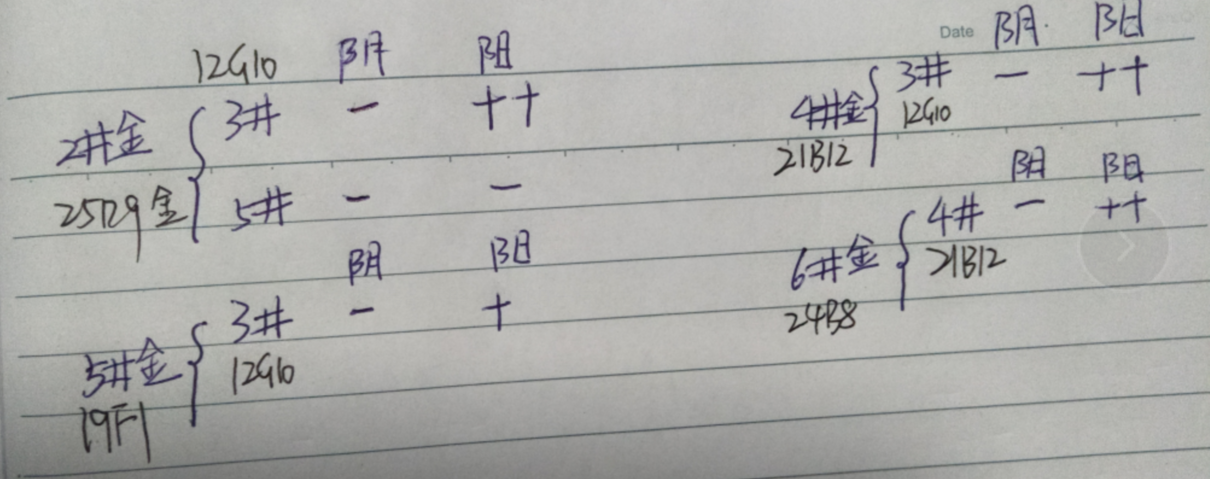 12G10 阴 阳
2#金 { 3# - ++
25D9金 5# - -
阴 阳
5#金 { 3# - +
19F1 12G10
Date 阴 阳
4#金 { 3# - ++
21B12 12G10
阴 阳
6#金 { 4# - ++
24B8 21B12